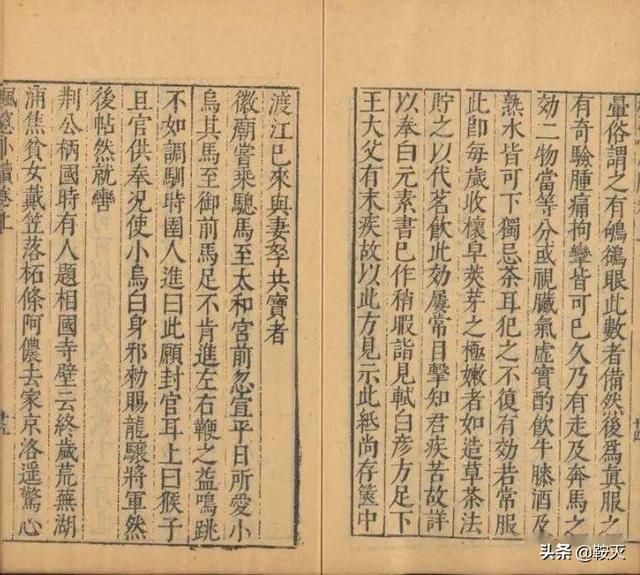 暈俗謂之有鴝鵒眼此數者備然後為真服之
有奇驗腫痛拘攣皆可已久乃有走及奔馬之
効二物當等分或視臟氣虛實酌飲牛膝酒及
熟水皆可下獨忌茶耳犯之不復有効若常服
此即每歲收櫰皁莢芽之極嫩者如造草茶法
貯之以代茗飲此効屢常目擊知君疾苦故詳
以奉白元素書已作稍暇詣見軾白彥方足下
王大父有末疾故以此方見示此紙尚存篋中
渡江已來與妻孥共寶者
徽廟嘗乘驄馬至太和宮前忽宣平日所愛小
烏其馬至御前馬足不肯進左右鞭之益鳴跳
不如調馴時圉人進曰此願封官耳上曰猴子
且官供奉況使小烏白身邪勑賜龍驤將軍然
後帖然就轡
荆公柄國時有人題相國寺壁云終歲荒蕪湖
浦焦貧女戴笠落柘條阿儂去家京洛遥驚心
头条 @鞍灭